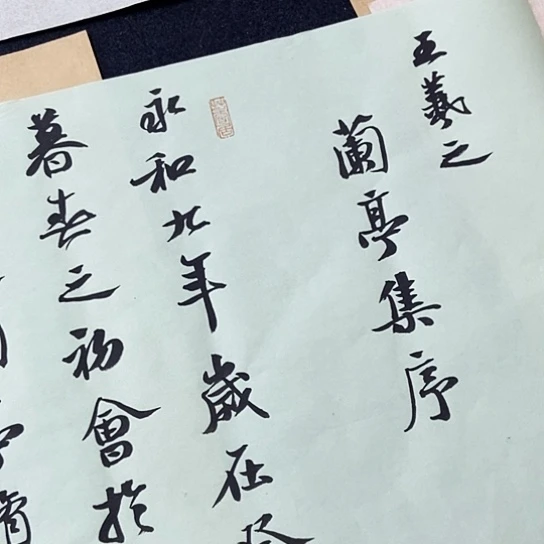 王羲之
蘭亭集序
永和九年歲在癸
暮春之初會於